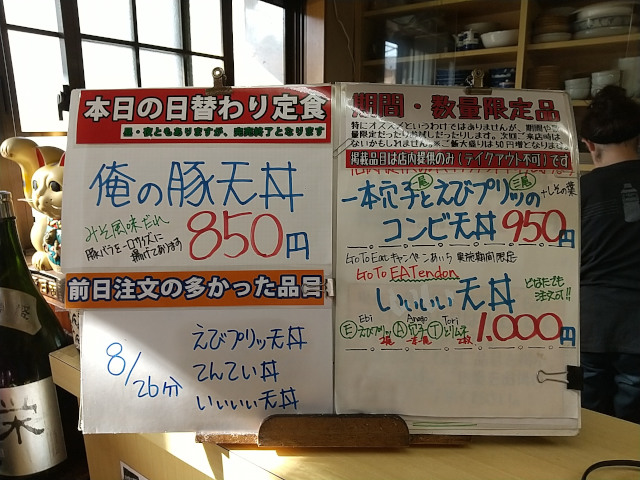 本日の日替わり定食
昼・夜ともありますが、完売終了となります
俺の豚天丼
みそ風味だれ
豚バラを一口サイズに
揚げております
850円
前日注文の多かった品目
8/26分
えびプリッ天丼
てんてい丼
いいいい天丼
期間・数量限定品
特にオススメというわけではありませんが、期間や
ないかもしれません。※ご飯大盛りは50円増となります
掲載品目は店内提供のみ(テイクアウト不可)です
一本穴子と一尾えびプリッの三尾
+しその葉
コンビ天丼 950円
Go To Eatキャンペーンあいち 実施期間限定
Go To EATendon
いいいい天丼
どなたでも
注文可!!
Ebi Anago Tori
Ⓔえびプリッ2尾 Ⓐ穴子一本一尾 Ⓣとりムネ2枚
1.000円
栄